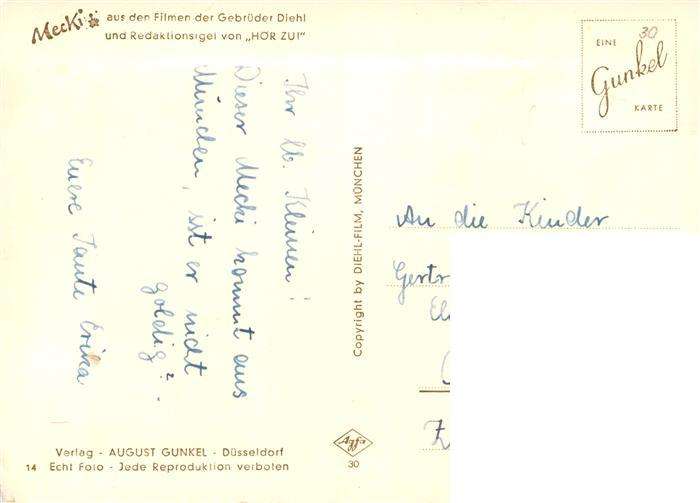 Mecki aus den Filmen der Gebrüder Diehl
und Redaktionsigel von „HÖR ZU!"
30
EINE
Gunkel
KARTE
Ihr lb. Kleinen!
Dieser Mecki kommt aus
München, ist er nicht
goldig?
Euere Tante Erika
Copyright by DIEHL-FILM, MÜNCHEN
An die Kinder
Gertr
El
Z
Verlag - AUGUST GUNKEL - Düsseldorf
14 Echt Foto - Jede Reproduktion verboten
Agfa
30